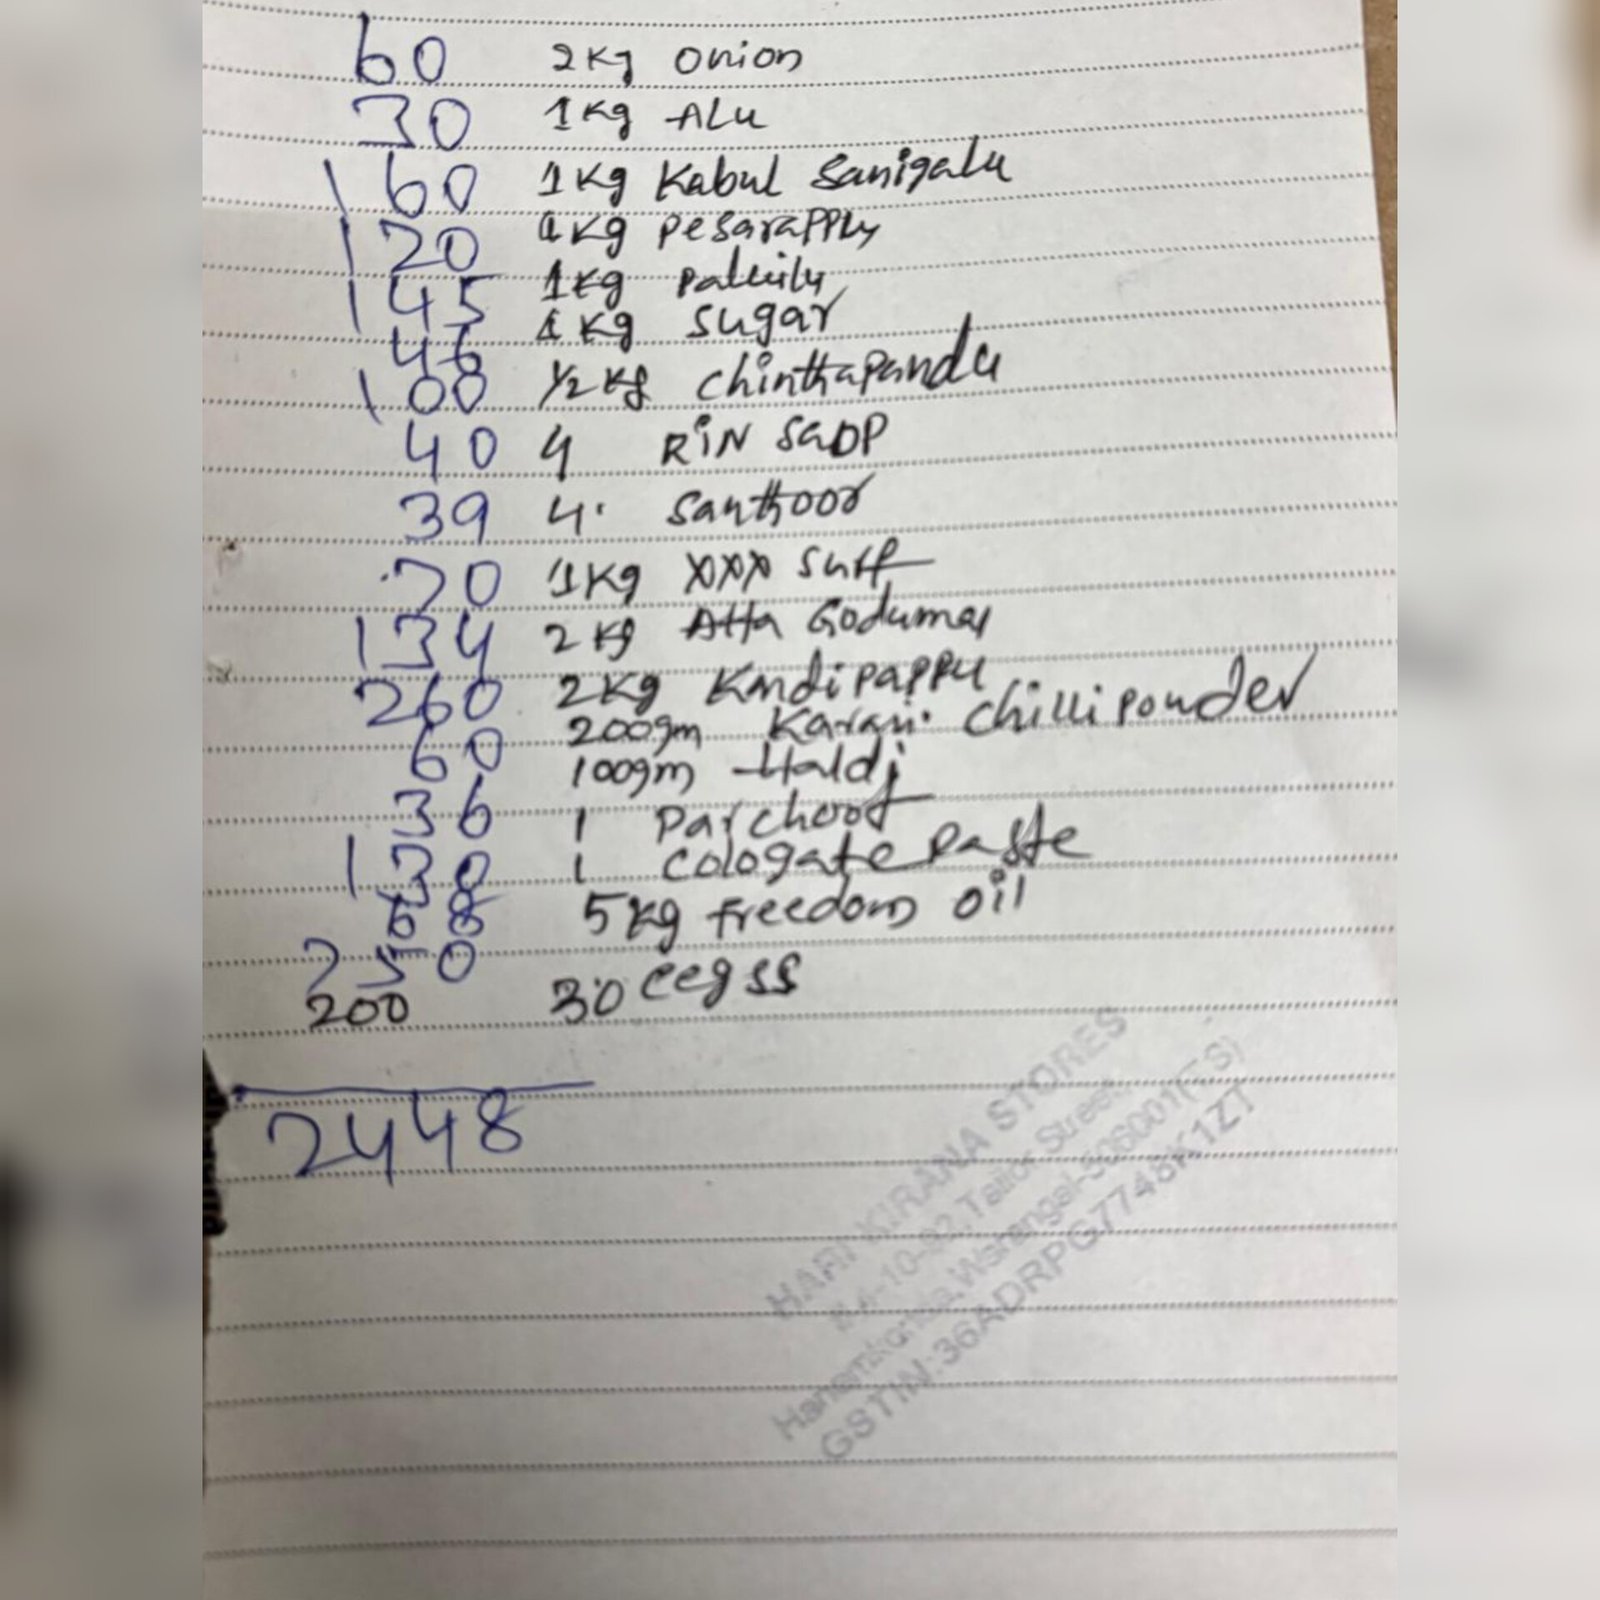 60 2kg onion
30 1kg ALu
160 1kg Kabul Sanigalu
120 1kg pesarapply
145 1kg palluilu
46 1kg sugar
100 1/2 kg chinthapandu
40 4 RiN SaOP
39 4. santhoor
70 1kg XXX surf
134 2kg Atta Godumai
260 2kg Kandipappu
60 200gm Karam. chilli pouder
36 100gm Haldi
130 1 parchoot
68 1 cologate paste
250 5kg freedom oil
200 30 eegss
2448
HARI KIRANA STORES
Tailor Street,
Hanamkonda, Warangal-506001(TS)
GSTIN:36ADRPG7748K1ZT